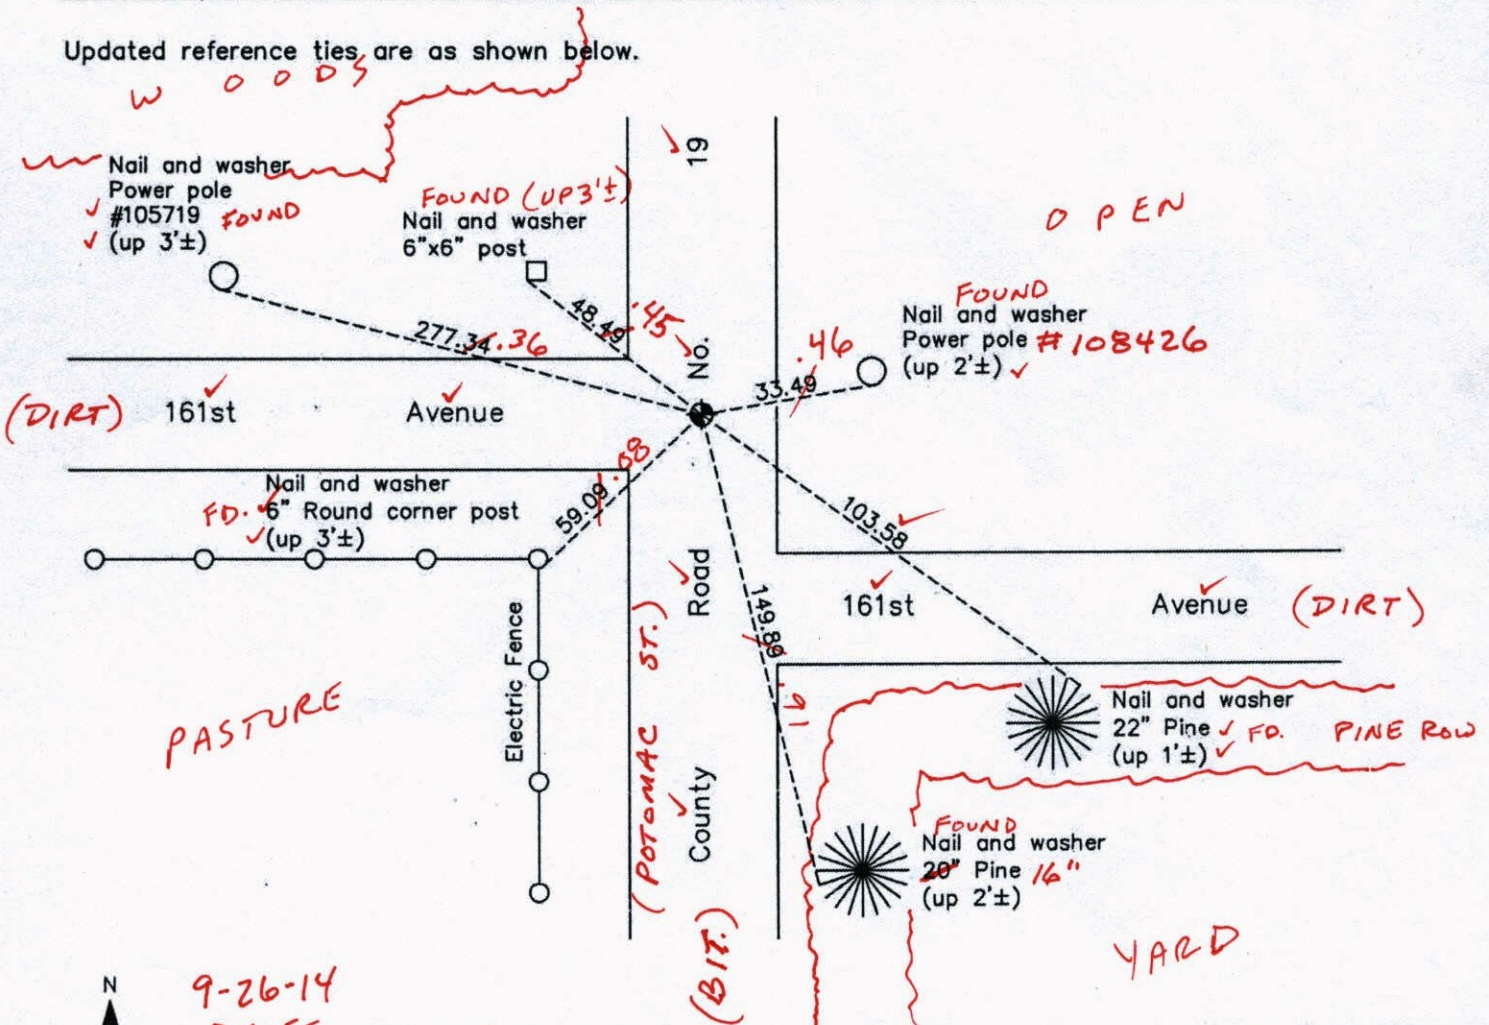 Updated reference ties are as shown below.
WOODS
Nail and washer
Power pole
#105719 FOUND
(up 3'±)
FOUND (UP 3'±)
Nail and washer
6"x6" post
19
OPEN
FOUND
Nail and washer
Power pole #108426
(up 2'±)
48.49 .45
277.34 .36
No.
.46
33.49
(DIRT) 161st Avenue
.08
59.09
Nail and washer
FD. 6" Round corner post
(up 3'±)
103.58
Road
149.89
.91
161st Avenue (DIRT)
Electric Fence
PASTURE
(POTOMAC ST.)
County
Nail and washer
22" Pine FD. PINE ROW
(up 1'±)
FOUND
Nail and washer
20" Pine 16"
(up 2'±)
(BIT.)
YARD
N
9-26-14